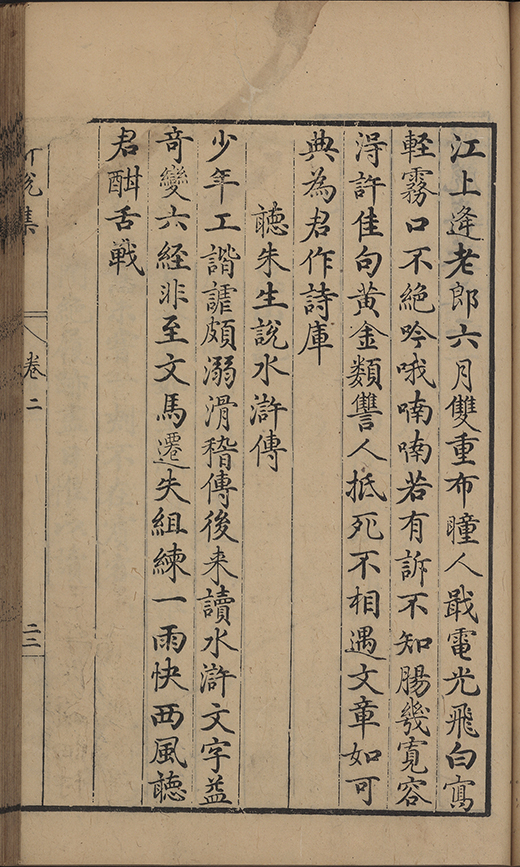 江上逢老郎六月雙重布瞳人戢電光飛白寫
輕霧口不絕吟哦喃喃若有訴不知腸幾寬容
淂許佳句黃金類讐人抵死不相遇文章如可
典為君作詩庫
聽朱生說水滸傳
少年工諧謔頗溺滑稽傳後来讀水滸文字益
竒變六經非至文馬遷失組練一雨快西風聽
君酣舌戰
集
卷二
二二